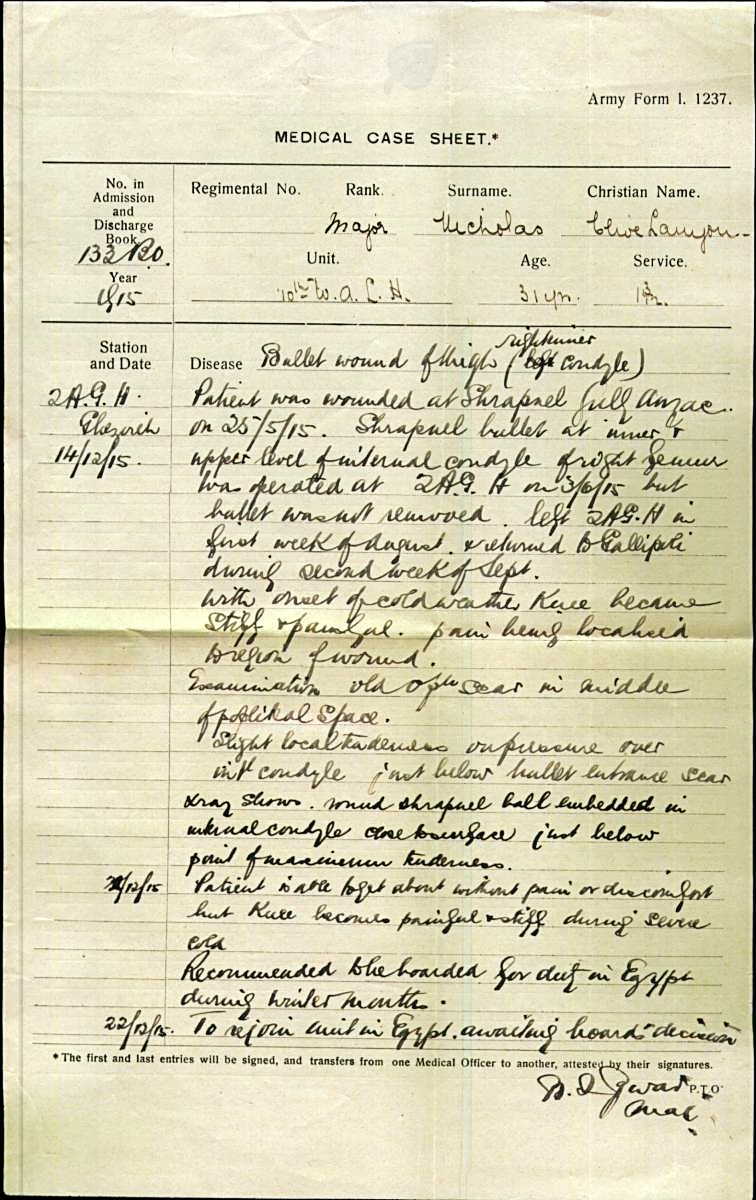 Army Form I. 1237.
MEDICAL CASE SHEET.*
No. in
Admission
and
Discharge
Book
Year
1915
Regimental No. Rank. Surname. Christian Name.
Major Nicholas Clive Lanyon
Unit. Age. Service.
10th 31 yrs.
Station
and Date
Disease Bullet wound of thigh (left condyle)
right inner
2 A.G.H. Patient was wounded at Shrapnel Gully Anzac.
Ghezireh on 25/5/15. Shrapnel bullet at inner &
14/12/15. upper level of internal condyle of right femur
was operated at 2 A.G.H on 3/6/15 but
bullet was not removed. left 2 AG.H in
first week of August. & returned to Gallipoli
during second week of Sept.
With onset of cold weather Knee became
Stiff & painful. pain being localised
to region of wound.
Examination old opn scar in middle
of popliteal space.
Slight local tenderness on pressure over
intl condyle just below bullet entrance scar
xray shows. round shrapnel ball embedded in
internal condyle close to surface just below
point of maximum tenderness.
/12/15 Patient is able to get about without pain or discomfort
but Knee becomes painful & stiff during severe
cold
Recommended to be boarded for duty in Egypt
during winter months.
22/12/15. To rejoin unit in Egypt. awaiting boards decision
*The first and last entries will be signed, and transfers from one Medical Officer to another, attested by their signatures.
P.T.O.